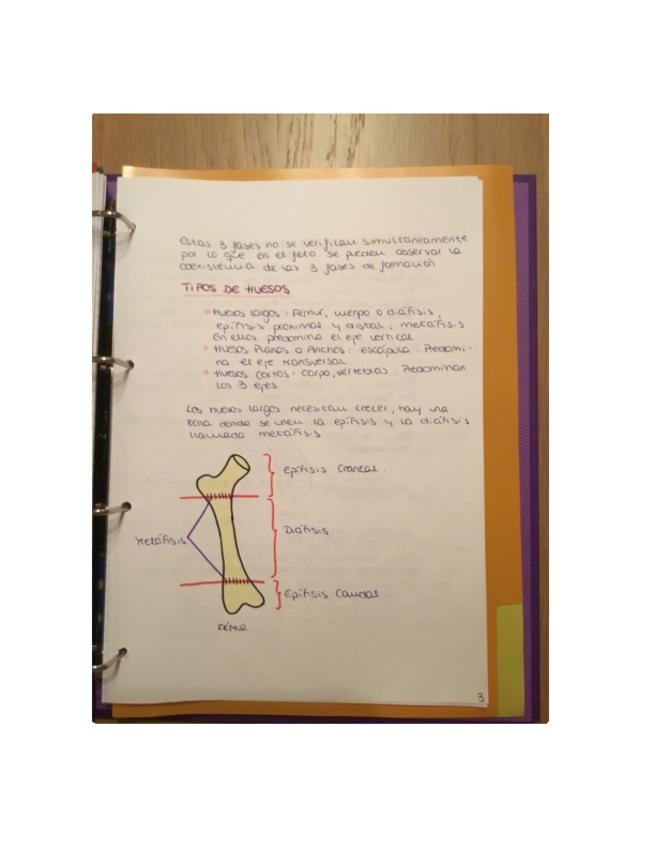 Estas 3 fases no se verifican simultáneamente
por lo que en el feto se pueden observar la
coexistencia de las 3 fases de formación
TIPOS DE HUESOS
Huesos largos: Fémur, cuerpo o diáfisis,
epífisis proximal y distal, metáfisis.
En ellos predomina el eje vertical
Huesos Planos o Anchos: escápula. Predomi-
na el eje transversal
Huesos cortos: carpo, vértebras. Predominan
los 3 ejes.
Los huesos largos necesitan crecer, hay una
zona donde se unen la epífisis y la diáfisis
llamada metáfisis.
Epífisis Craneal.
Diáfisis
Metáfisis
Epífisis Caudal.
FÉMUR
3